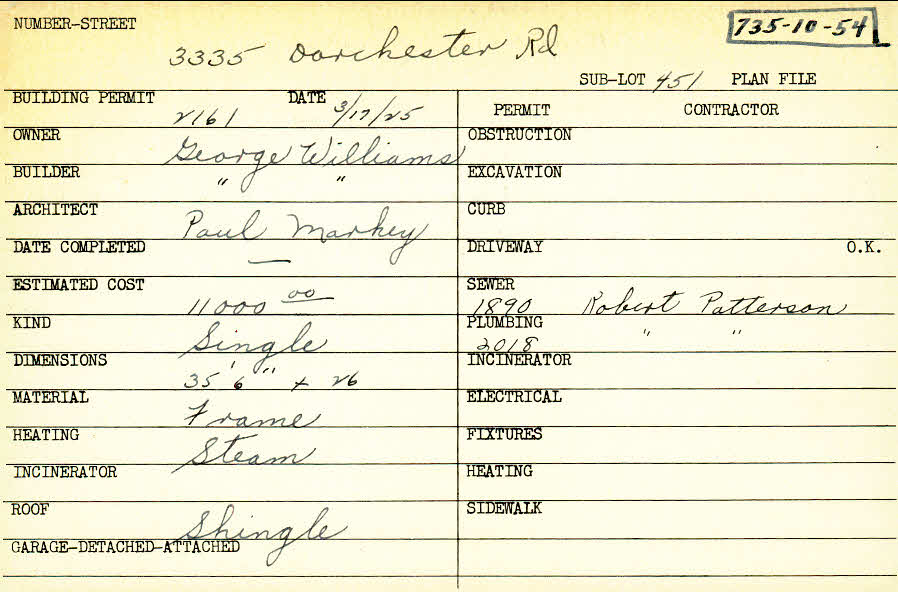 NUMBER-STREET
735-10-54
3335 Dorchester Rd
SUB-LOT 451 PLAN FILE
BUILDING PERMIT 2161 DATE 3/17/25
PERMIT CONTRACTOR
OWNER George Williams
OBSTRUCTION
BUILDER " "
EXCAVATION
ARCHITECT Paul Markey
CURB
DATE COMPLETED —
DRIVEWAY O.K.
ESTIMATED COST 11000 00
SEWER 1890 Robert Patterson
KIND Single
PLUMBING 2018 " "
DIMENSIONS 35' 6" + 26
INCINERATOR
MATERIAL Frame
ELECTRICAL
HEATING Steam
FIXTURES
INCINERATOR
HEATING
ROOF Shingle
SIDEWALK
GARAGE-DETACHED-ATTACHED